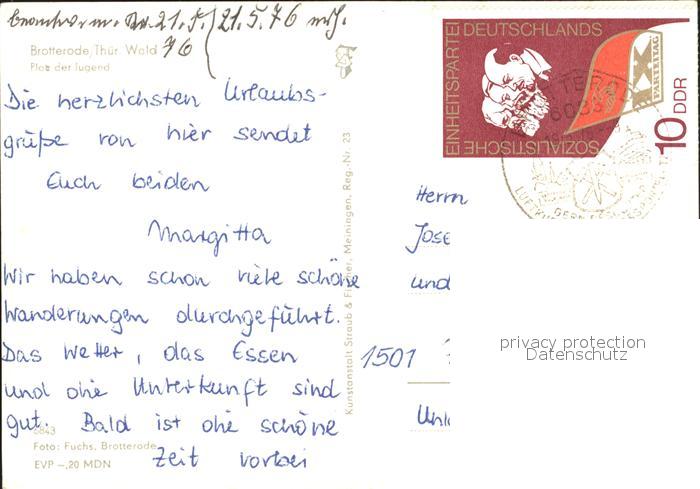 21.5.76
76
Brotterode, Thür. Wald
Platz der Jugend
Die herzlichsten Urlaubs-
grüße von hier sendet
Euch beiden
Margitta
Wir haben schon viele schöne
Wanderungen durchgeführt.
Das Wetter, das Essen
und die Unterkunft sind
gut. Bald ist die schöne
Zeit vorbei
6843
Foto: Fuchs, Brotterode
EVP -,20 MDN
Kunstanstalt Straub & Fischer, Meiningen, Reg.-Nr. 23
SOZIALISTISCHE
EINHEITSPARTEI
DEUTSCHLANDS
IX
PARTEITAG
10 DDR
Herrn
Jose
und
1501
privacy protection
Datenschutz